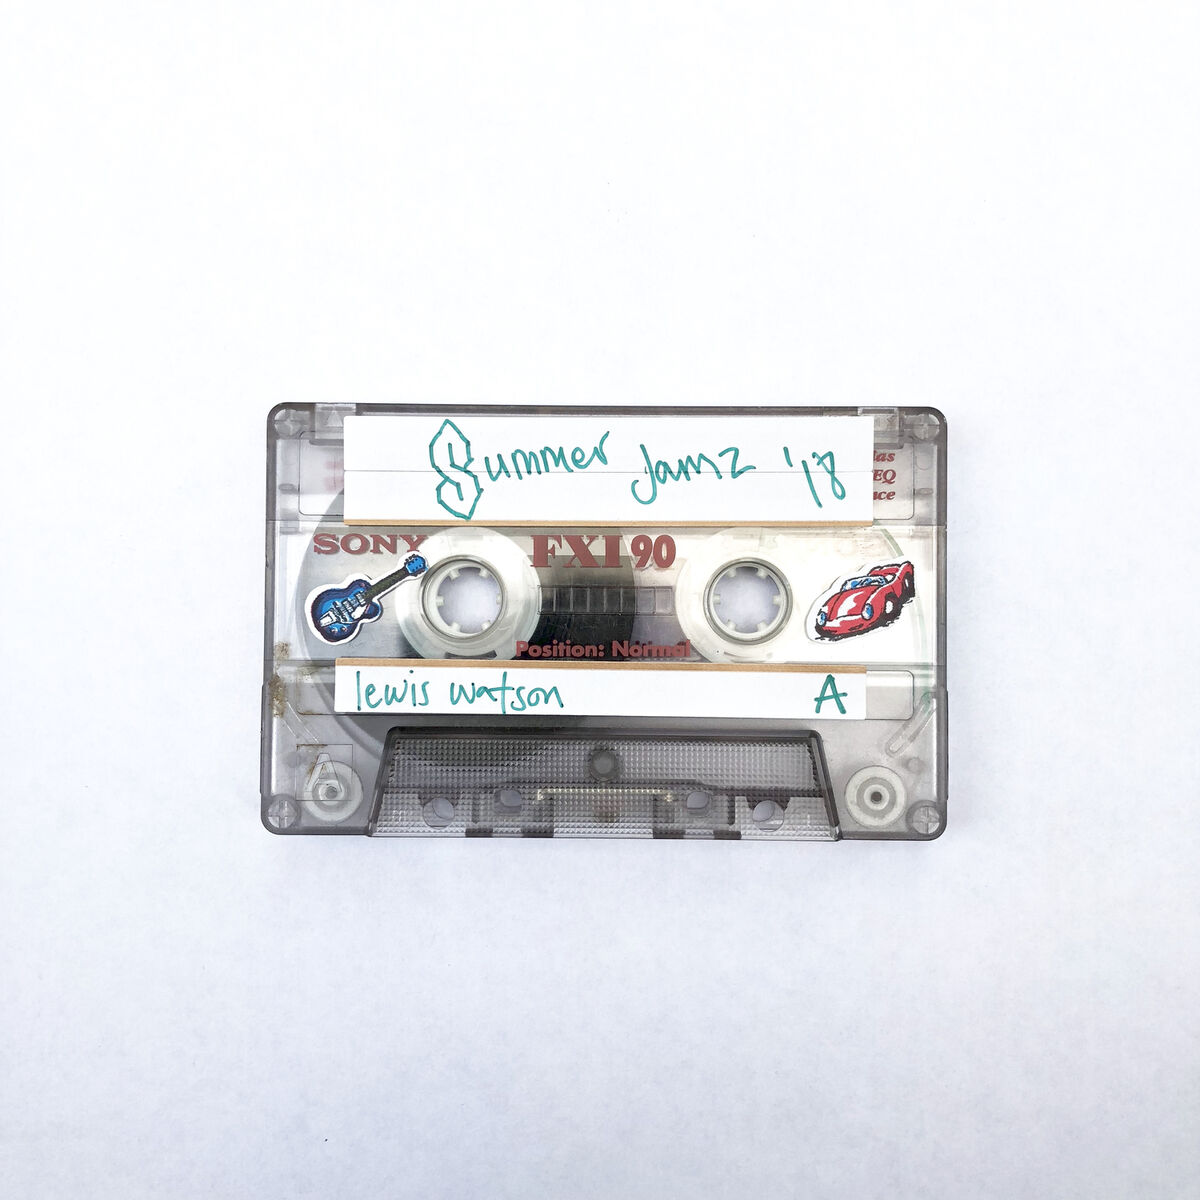 Summer Jamz '18
EQ
SONY
FXI 90
Position: Normal
lewis watson
A
A